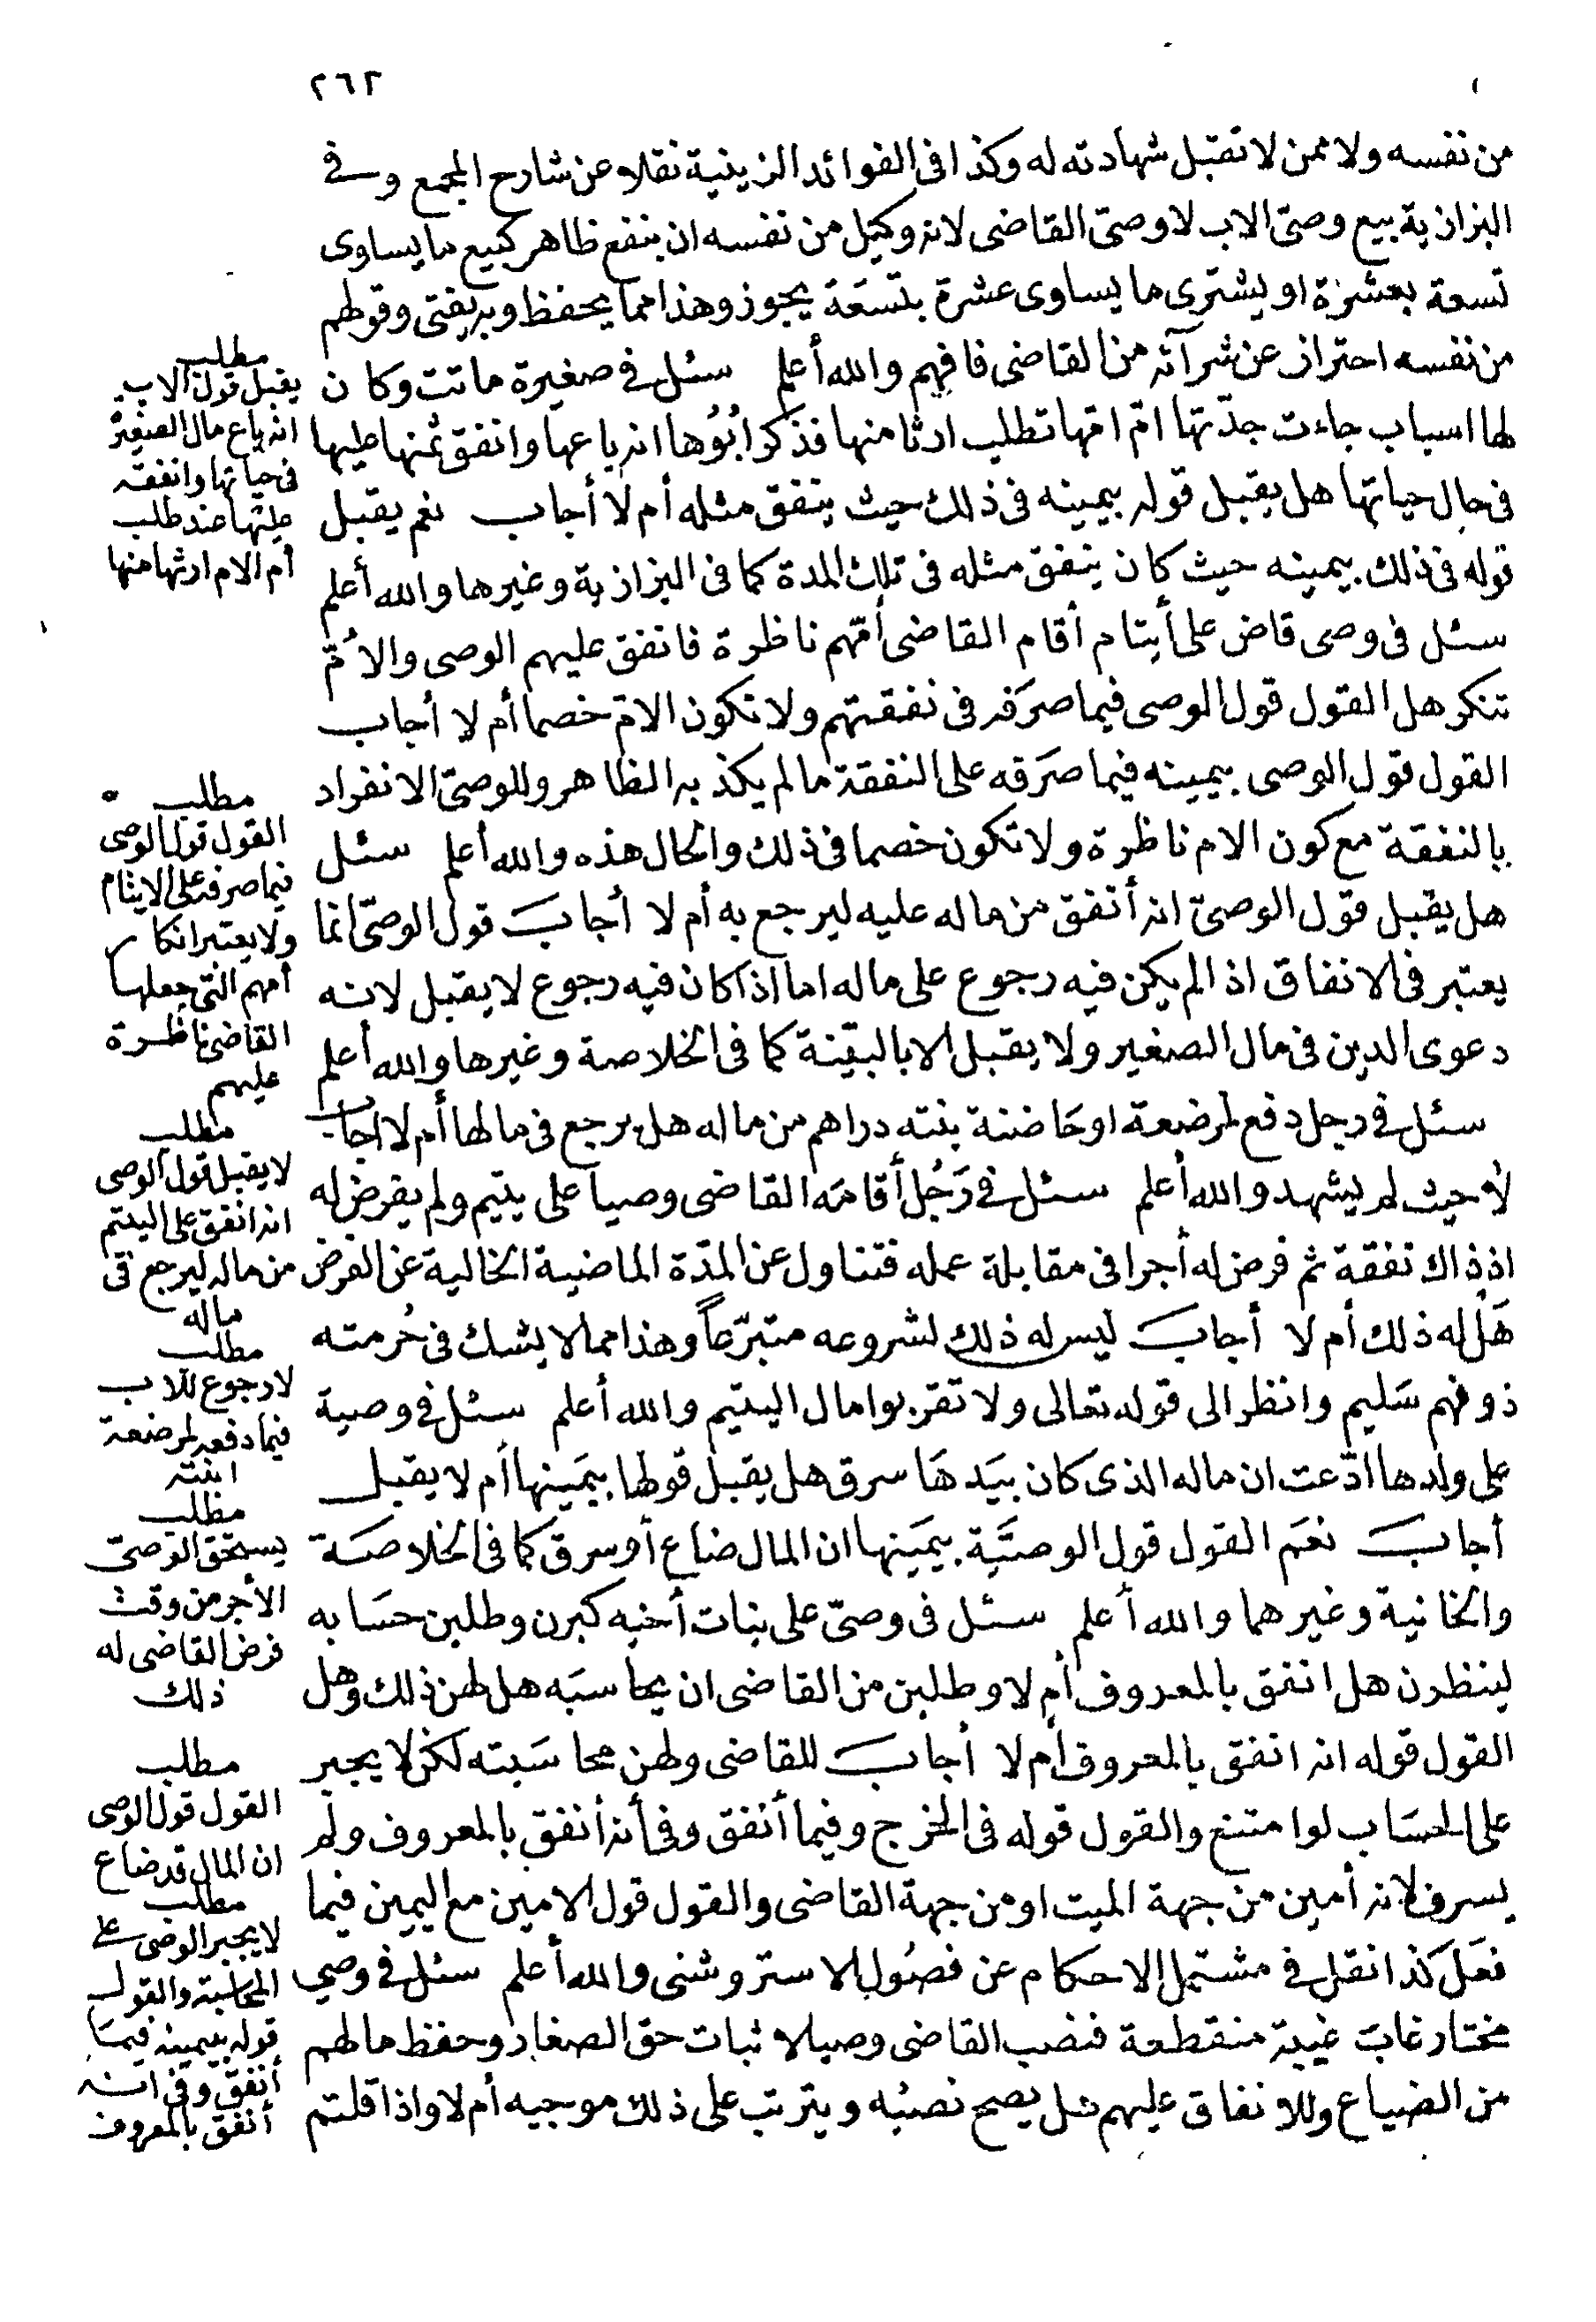 ٢٦٢
من نفسه ولا ممن لا تقبل شهادته له وكذا فى الفوائد الزينية نقلا عن شارح المجمع وفى
البزازية بيع وصىّ الاب لا وصىّ القاضى لانه وكيل من نفسه ان بنفع ظاهر كبيع ما يساوى
تسعة بعشرة او يشترى ما يساوى عشرة بتسعة يجوز وهذا مما يحفظ وبه يفتى وقولهم
من نفسه احتراز عن شرآئه من القاضى فافهم والله أعلم سئل فى صغيرة ماتت وكان
لها اسباب جاءت جدّتها امّ امّها تطلب ارثا منها فذكر ابُوُها انه باعها وانفق ثمنها عليها
فى حال حياتها هل يقبل قوله بيمينه فى ذلك حيث ينفق مثله أم لا أجاب نعم يقبل
قوله فى ذلك بيمينه حيث كان ينفق مثله فى تلك المدة كما فى البزازية وغيرها والله أعلم
سئل فى وصى قاض على أيتام أقام القاضى أمّهم ناظرة فانفق عليهم الوصى والامّ
تنكر هل القول قول الوصى فيما صرَفه فى نفقتهم ولا تكون الامّ خصما أم لا أجاب
القول قول الوصى بيمينه فيما صرَفه على النفقة ما لم يكذبه الظاهر وللوصىّ الانفراد
بالنفقة مع كون الام ناظرة ولا تكون خصما فى ذلك والحال هذه والله أعلم سئل
هل يقبل قول الوصىّ انه أنفق من ماله عليه ليرجع به أم لا أجابَ قول الوصىّ انما
يعتبر فى الانفاق اذا لم يكن فيه رجوع على ماله اما اذا كان فيه رجوع لا يقبل لانه
دعوى الدين فى مال الصغير ولا يقبل الا بالبيّنة كما فى الخلاصة وغيرها والله أعلم
سئل فى رجل دفع لمرضعة او حَاضنة بنته دراهم من ماله هل يرجع فى مالها أم لا اجاب
لا حيث لم يشهد والله أعلم سئل فى رَجُل أقامَه القاضى وصيا على يتيم ولم يفرض له
اذ ذاك نفقة ثم فرض له أجرا فى مقابلة عمله فتناول عن المدّة الماضية الخالية عن الفرض
هَل له ذلك أم لا أجابَ ليس له ذلك لشروعه متبرّعاً وهذا مما لا يشك فى حُرمته
ذو فهم سَليم وانظر الى قوله تعالى ولا تقربوا مال اليتيم والله أعلم سئل فى وصية
على ولدها ادّعت ان ماله الذى كان بيَدهَا سرق هل يقبل قولها بيمَينها أم لا يقبل
أجابَ نعَم القول قول الوصيَّة بيمَينها ان المال ضاع أو سرق كما فى الخلاصَة
والخانية وغيرهما والله أعلم سئل فى وصىّ على بنات أخيه كبرن وطلبن حسَابه
لينظرن هل انفق بالمعروف أم لا وطلبن من القاضى ان يحاسبَه هل لهن ذلك وهل
القول قوله انه انفق بالمعروف أم لا أجابَ للقاضى ولهن محاسَبته لكن لا يجبر
على الحسَاب لو امتنع والقول قوله فى الخرج وفيما أنفق وفى أنه أنفق بالمعروف ولم
يسرف لانه أمين من جهة الميت او من جهة القاضى والقول قول الامين مع اليمين فيما
فعَل كذا نقل فى مشتمل الاحكام عن فصُول الاستروشنى والله أعلم سئل فى وصي
مختار غابَ غيبة منقطعة فنصب القاضى وصيا لاثبات حق الصغار وحفظ مالهم
من الضياع وللانفاق عليهم هل يصح نصبُه ويترتب على ذلك موجبه أم لا واذا قلتم
مطلب
يقبل قول الاب
انه باع مال الصغيرة
فى حياتها وانفقه
عليها عند طلب
أم الام ارثها منها
مطلب
القول قول الوصى
فيما صرفه على الايتام
ولا يعتبر انكار
أمهم التى جعلها
القاضى ناظرة
عليهم
مطلب
لا يقبل قول الوصى
انه انفق على اليتيم
من ماله ليرجع فى
ماله
مطلب
لا رجوع للاب
فيما دفعه لمرضعة
ابنته
مطلب
يستحق الوصىّ
الأجر من وقت
فرض القاضى له
ذلك
مطلب
القول قول الوصى
ان المال قد ضاع
مطلب
لا يجبر الوصى على
المحاسبة والقول
قوله بيمينه فيمَا
أنفق وفى انه
أنفق بالمعروف